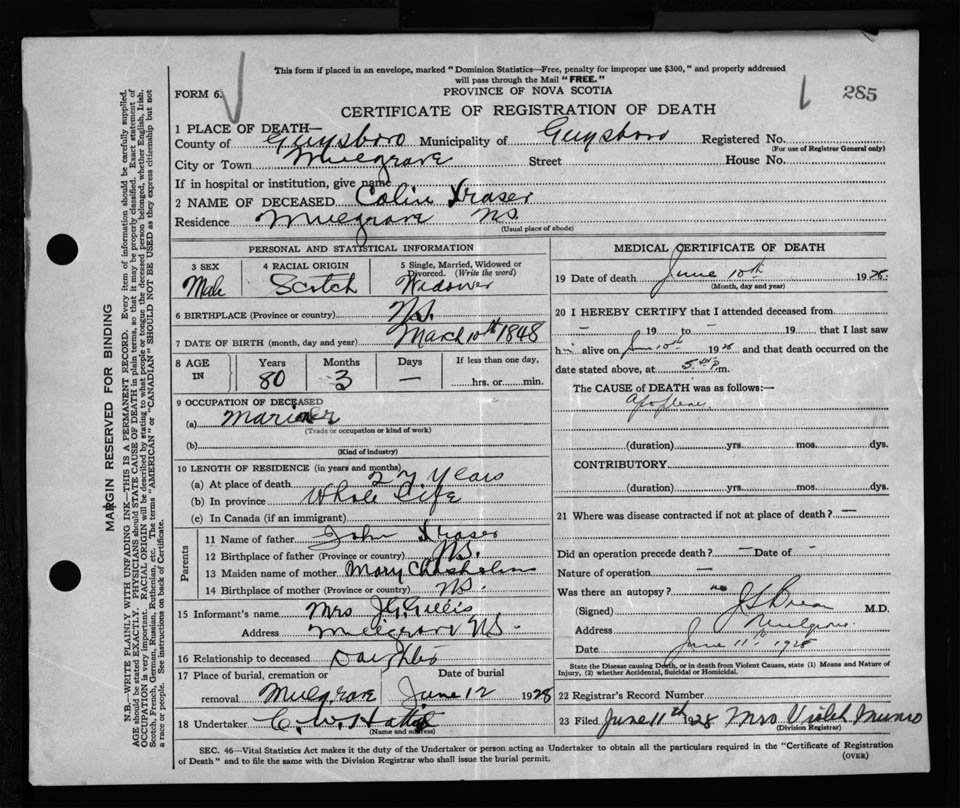 This form if placed in an envelope, marked "Dominion Statistics—Free, penalty for improper use $300," and properly addressed
will pass through the Mail "FREE."
FORM 6.
PROVINCE OF NOVA SCOTIA
285
CERTIFICATE OF REGISTRATION OF DEATH
1 PLACE OF DEATH—
County of Guysboro Municipality of Guysboro Registered No.
(For use of Registrar General only)
City or Town Mulgrave Street House No.
If in hospital or institution, give name
2 NAME OF DECEASED Colin Fraser
Residence Mulgrave N.S.
(Usual place of abode)
PERSONAL AND STATISTICAL INFORMATION
3 SEX 4 RACIAL ORIGIN 5 Single, Married, Widowed or
Divorced. (Write the word)
Male Scotch Widower
6 BIRTHPLACE (Province or country) N.S.
7 DATE OF BIRTH (month, day and year) March 10th 1848
8 AGE IN Years Months Days If less than one day,
80 3 — hrs. or min.
9 OCCUPATION OF DECEASED
(a) Mariner
(Trade or occupation or kind of work)
(b)
(Kind of industry)
10 LENGTH OF RESIDENCE (in years and months)
(a) At place of death 27 years
(b) In province Whole Life
(c) In Canada (if an immigrant)
Parents
11 Name of father John Fraser
12 Birthplace of father (Province or country) N.S.
13 Maiden name of mother Mary Chisholm
14 Birthplace of mother (Province or country) N.S.
15 Informant's name Mrs J.G. Gillis
Address Mulgrave N.S.
16 Relationship to deceased Daughter
17 Place of burial, cremation or Date of burial
removal Mulgrave June 12 1928
18 Undertaker C. W.
(Name and address)
MEDICAL CERTIFICATE OF DEATH
19 Date of death June 10th 1928
(Month, day and year)
20 I HEREBY CERTIFY that I attended deceased from
— 19 to — 19 that I last saw
h alive on June 10th 1928 and that death occurred on the
date stated above, at 5 P.m.
The CAUSE of DEATH was as follows:—
(duration) yrs. mos. dys.
CONTRIBUTORY
(duration) yrs. mos. dys.
21 Where was disease contracted if not at place of death? —
Did an operation precede death? — Date of -
Nature of operation —
Was there an autopsy? no
(Signed) M.D.
Address Mulgrave
Date June 11th 1928
State the Disease causing Death, or in death from Violent Causes, state (1) Means and Nature of
Injury, (2) whether Accidental, Suicidal or Homicidal.
22 Registrar's Record Number
23 Filed June 11th 1928 Mrs Violet Munro
(Division Registrar)
SEC. 46—Vital Statistics Act makes it the duty of the Undertaker or person acting as Undertaker to obtain all the particulars required in the "Certificate of Registration
of Death" and to file the same with the Division Registrar who shall issue the burial permit.
(OVER)
MARGIN RESERVED FOR BINDING
N.B.—WRITE PLAINLY WITH UNFADING INK—THIS IS A PERMANENT RECORD. Every item of information should be carefully supplied.
AGE should be stated EXACTLY. PHYSICIANS should STATE CAUSE OF DEATH in plain terms, so that it may be properly classified. Exact statement of
OCCUPATION is very important. RACIAL ORIGIN will be described by stating to what people or tongue the deceased person belonged, whether English, Irish,
Scotch, French, German, Russian, Ruthenian, etc. The terms "AMERICAN" or "CANADIAN" SHOULD NOT BE USED as they express citizenship but not
a race or people. See instructions on back of Certificate.